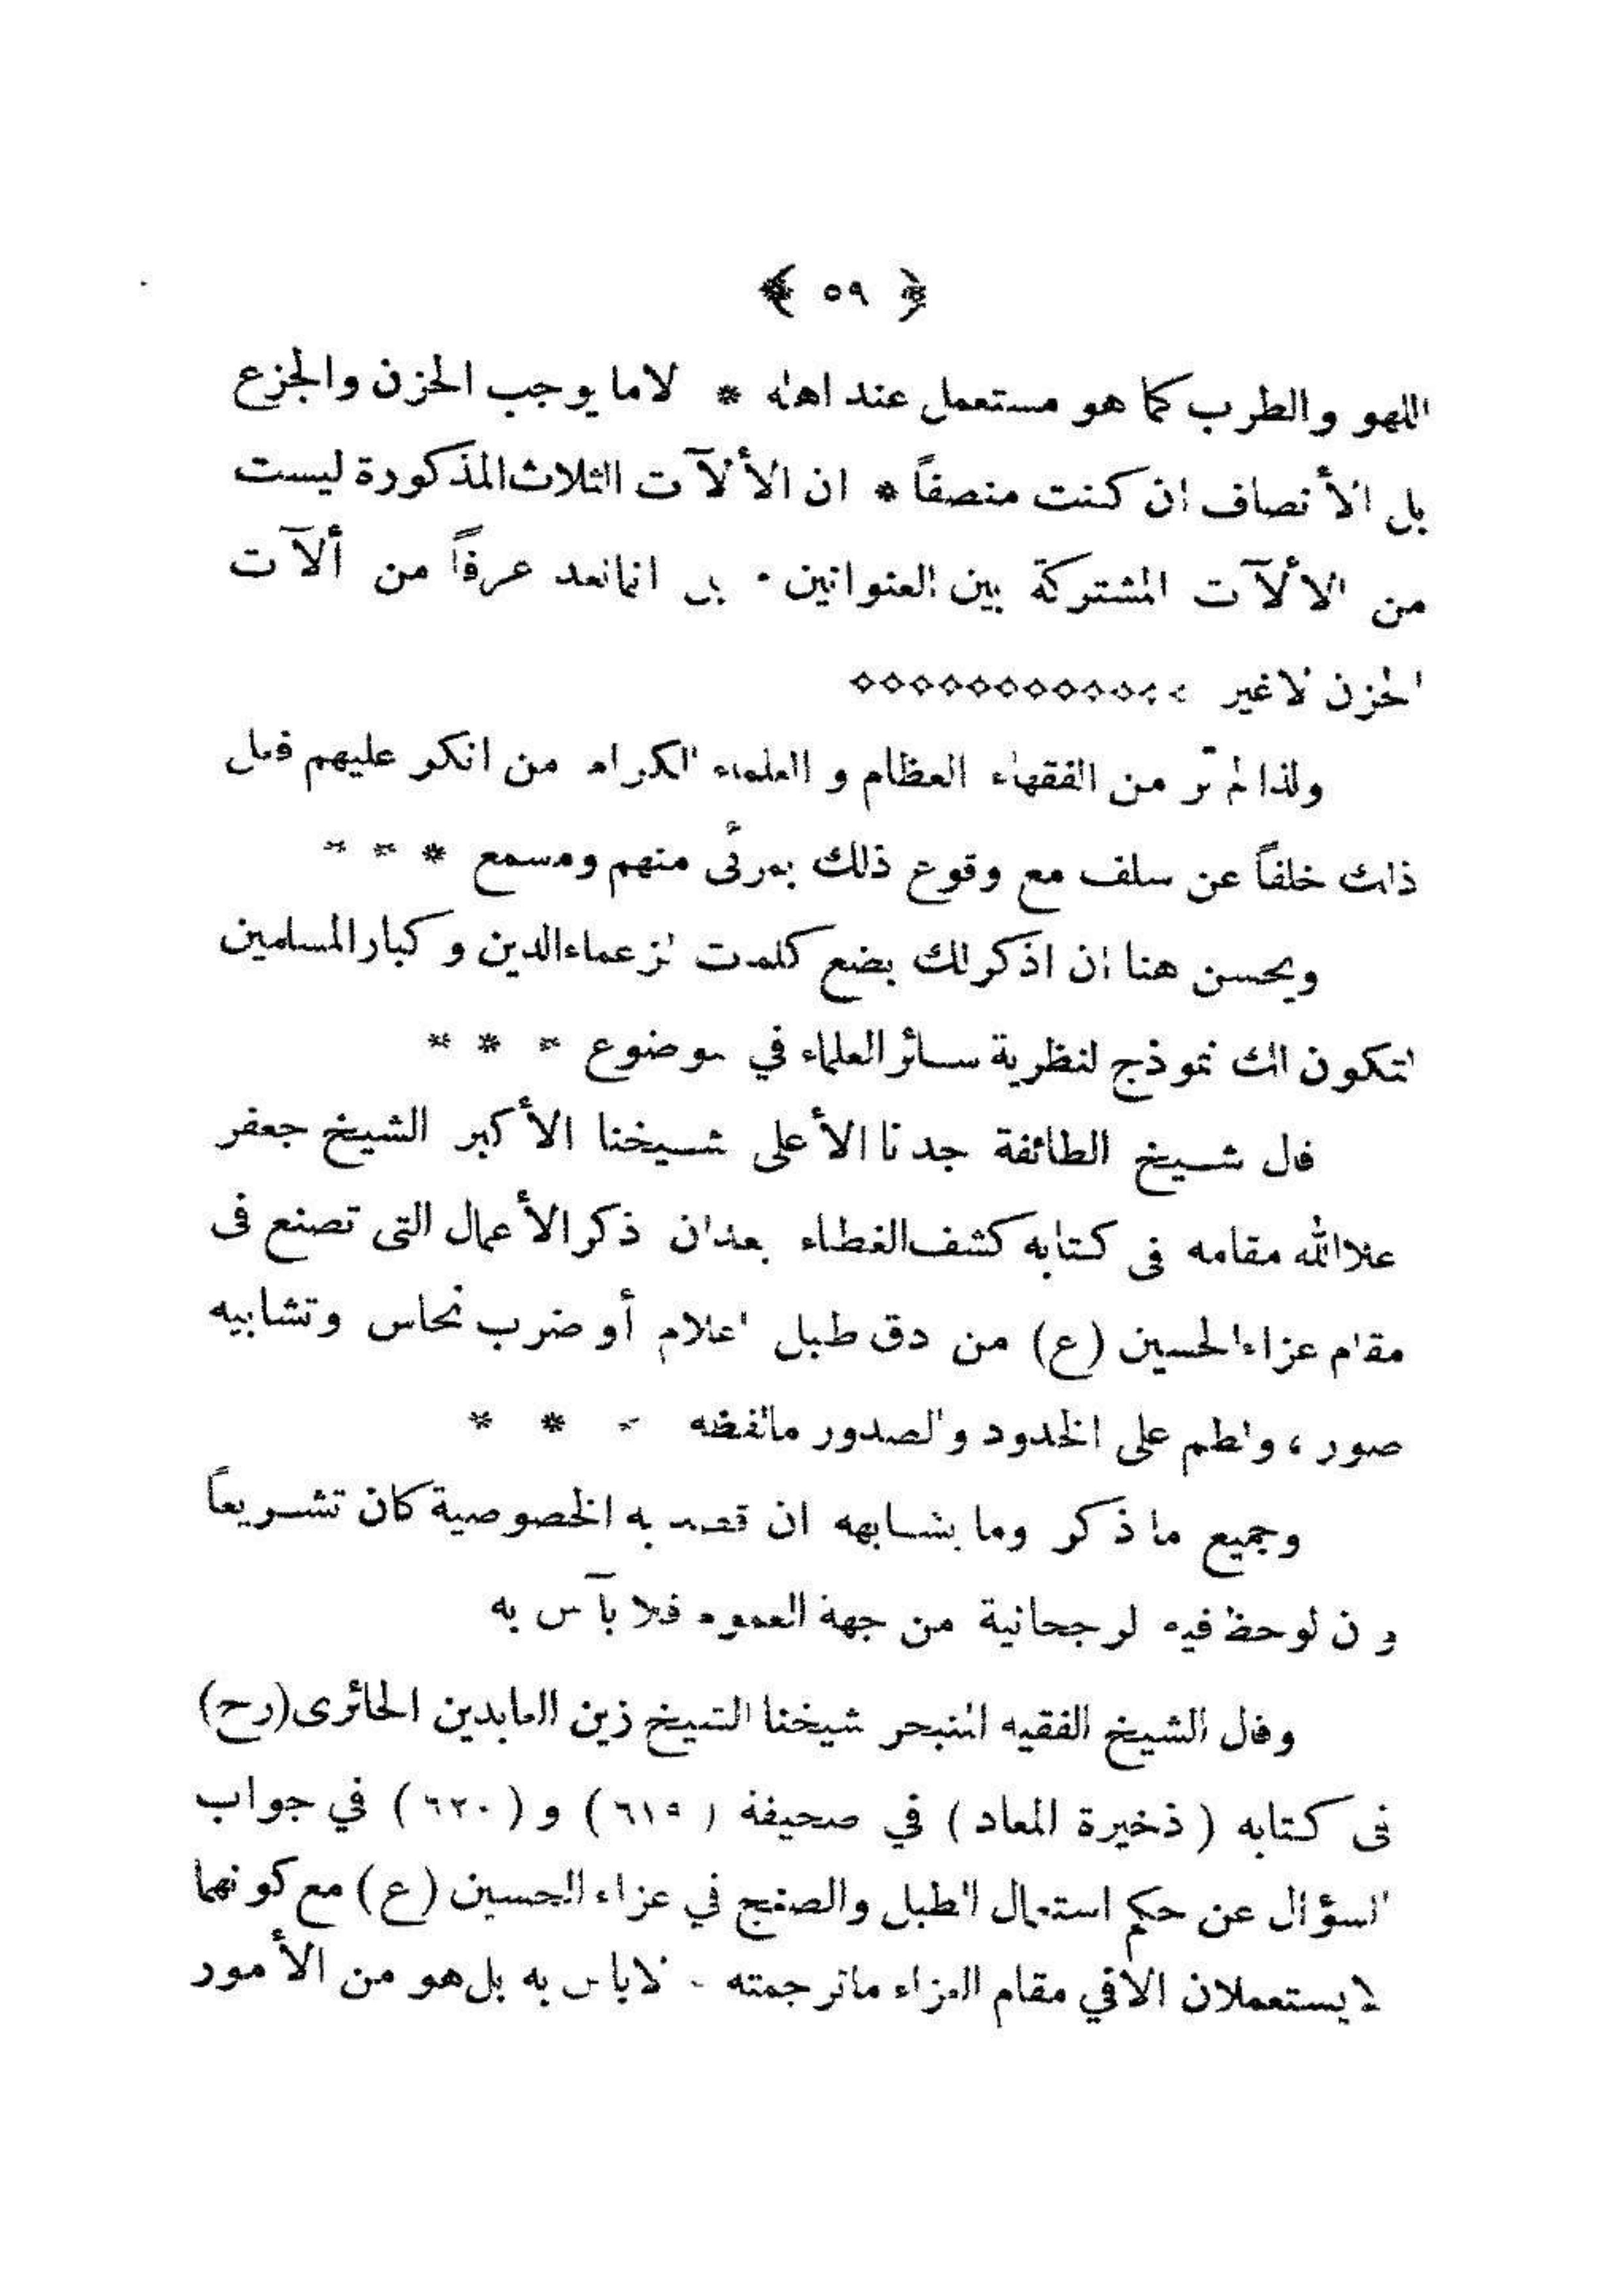 ﴿ ٥٩ ﴾
اللهو والطرب كما هو مستعمل عند اهله * لا ما يوجب الحزن والجزع
بل الأنصاف ان كنت منصفاً * ان الألآت الثلاث المذكورة ليست
من الألآت المشتركة بين العنوانين • بل انما تعد عرفاً من ألآت
الحزن لا غير
ولذا لم تر من الفقهاء العظام و العلماء الكرام من انكر عليهم فعل
ذلك خلفاً عن سلف مع وقوع ذلك بمرئى منهم ومسمع * * *
ويحسن هنا ان اذكر لك بضع كلمت لزعماء الدين و كبار المسلمين
لتكون لك نموذج لنظرية سائر العلماء في موضوع * * *
قال شيخ الطائفة جدنا الأعلى شيخنا الأكبر الشيخ جعفر
علا الله مقامه فى كتابه كشف الغطاء بعد ان ذكر الأعمال التى تصنع فى
مقام عزاء الحسين (ع) من دق طبل اعلام أو ضرب نحاس وتشابيه
صور ، ولطم على الخدود والصدور ما لفظه * * *
وجميع ما ذكر وما يشابهه ان قصد به الخصوصية كان تشريعاً
و ن لوحظ فيه لرجحانية من جهة العموم فلا بآس به
وقال الشيخ الفقيه المتبحر شيخنا الشيخ زين العابدين الحائرى (رح)
فى كتابه ( ذخيرة المعاد ) في صحيفة ( ٦١٩ ) و ( ٦٢٠ ) في جواب
السؤال عن حكم استعمال الطبل والصنج في عزاء الحسين (ع) مع كونهما
لا يستعملان الا في مقام العزاء ما ترجمته - لا باس به بل هو من الأمور